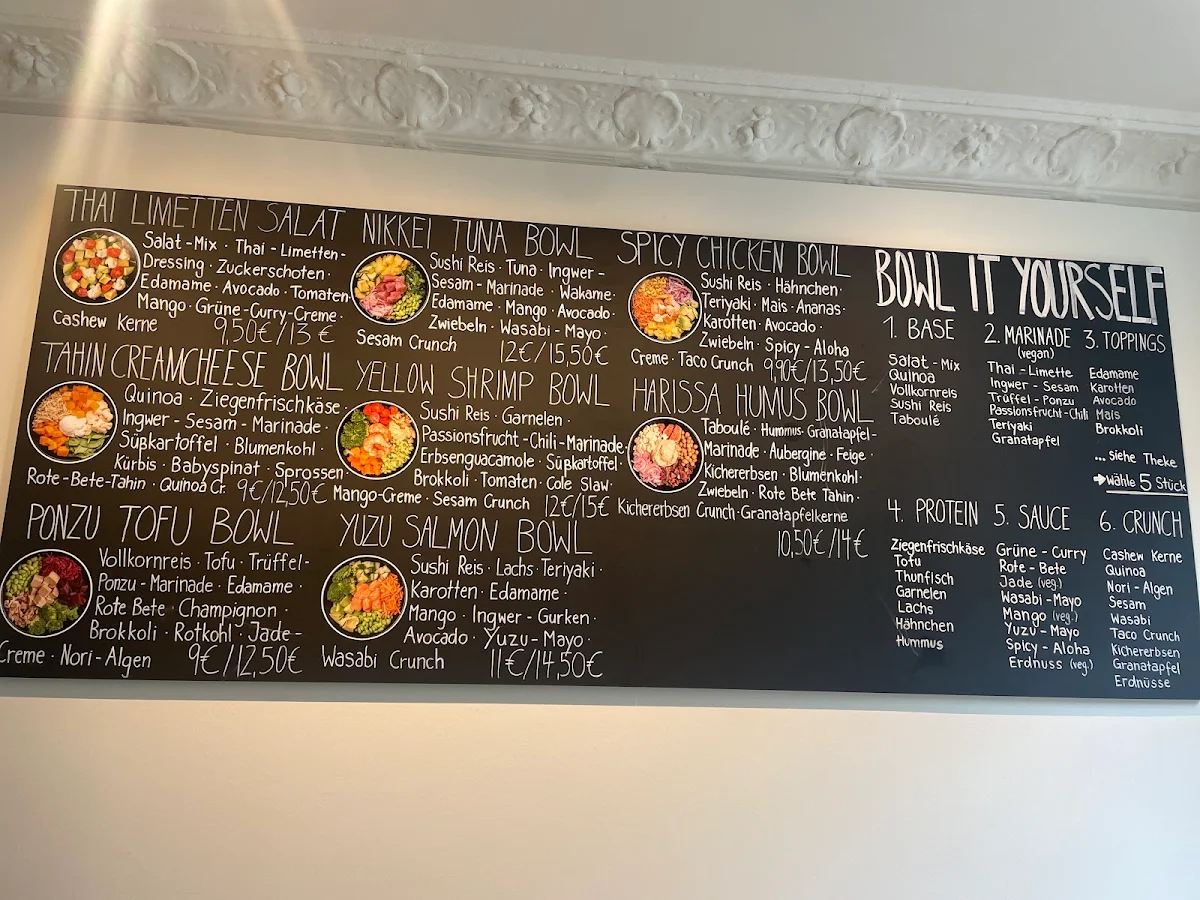 THAI LIMETTEN SALAT
Salat-Mix · Thai-Limetten-
Dressing · Zuckerschoten ·
Edamame · Avocado · Tomaten ·
Mango · Grüne-Curry-Creme ·
Cashew Kerne 9,50€/13€
TAHIN CREAMCHEESE BOWL
Quinoa · Ziegenfrischkäse ·
Ingwer-Sesam-Marinade ·
Süßkartoffel · Blumenkohl ·
Kürbis · Babyspinat · Sprossen
Rote-Bete-Tahin · Quinoa Cr. 9€/12,50€
PONZU TOFU BOWL
Vollkornreis · Tofu · Trüffel-
Ponzu-Marinade · Edamame ·
Rote Bete · Champignon ·
Brokkoli · Rotkohl · Jade-
Creme · Nori-Algen 9€/12,50€
NIKKEI TUNA BOWL
Sushi Reis · Tuna · Ingwer-
Sesam-Marinade · Wakame ·
Edamame · Mango · Avocado ·
Zwiebeln · Wasabi-Mayo ·
Sesam Crunch 12€/15,50€
YELLOW SHRIMP BOWL
Sushi Reis · Garnelen ·
Passionsfrucht-Chili-Marinade ·
Erbsenguacamole · Süßkartoffel ·
Brokkoli · Tomaten · Cole Slaw ·
Mango-Creme · Sesam Crunch 12€/15€
YUZU SALMON BOWL
Sushi Reis · Lachs · Teriyaki ·
Karotten · Edamame ·
Mango · Ingwer-Gurken ·
Avocado · Yuzu-Mayo ·
Wasabi Crunch 11€/14,50€
SPICY CHICKEN BOWL
Sushi Reis · Hähnchen ·
Teriyaki · Mais · Ananas ·
Karotten · Avocado ·
Zwiebeln · Spicy-Aloha
Creme · Taco Crunch 9,90€/13,50€
HARISSA HUMUS BOWL
Taboulé · Hummus · Granatapfel-
Marinade · Aubergine · Feige ·
Kichererbsen · Blumenkohl ·
Zwiebeln · Rote Bete Tahin ·
Kichererbsen Crunch · Granatapfelkerne
10,50€/14€
BOWL IT YOURSELF
1. BASE
Salat-Mix
Quinoa
Vollkornreis
Sushi Reis
Taboulé
2. MARINADE
(vegan)
Thai-Limette
Ingwer-Sesam
Trüffel-Ponzu
Passionsfrucht-Chili
Teriyaki
Granatapfel
3. TOPPINGS
Edamame
Karotten
Avocado
Mais
Brokkoli
... siehe Theke
➔ wähle 5 Stück
4. PROTEIN
Ziegenfrischkäse
Tofu
Thunfisch
Garnelen
Lachs
Hähnchen
Hummus
5. SAUCE
Grüne-Curry
Rote-Bete
Jade (veg.)
Wasabi-Mayo
Mango (veg.)
Yuzu-Mayo
Spicy-Aloha
Erdnuss (veg.)
6. CRUNCH
Cashew Kerne
Quinoa
Nori-Algen
Sesam
Wasabi
Taco Crunch
Kichererbsen
Granatapfel
Erdnüsse